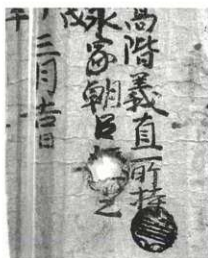 高階義直所持
永家朝臣 之
戌
三月吉日